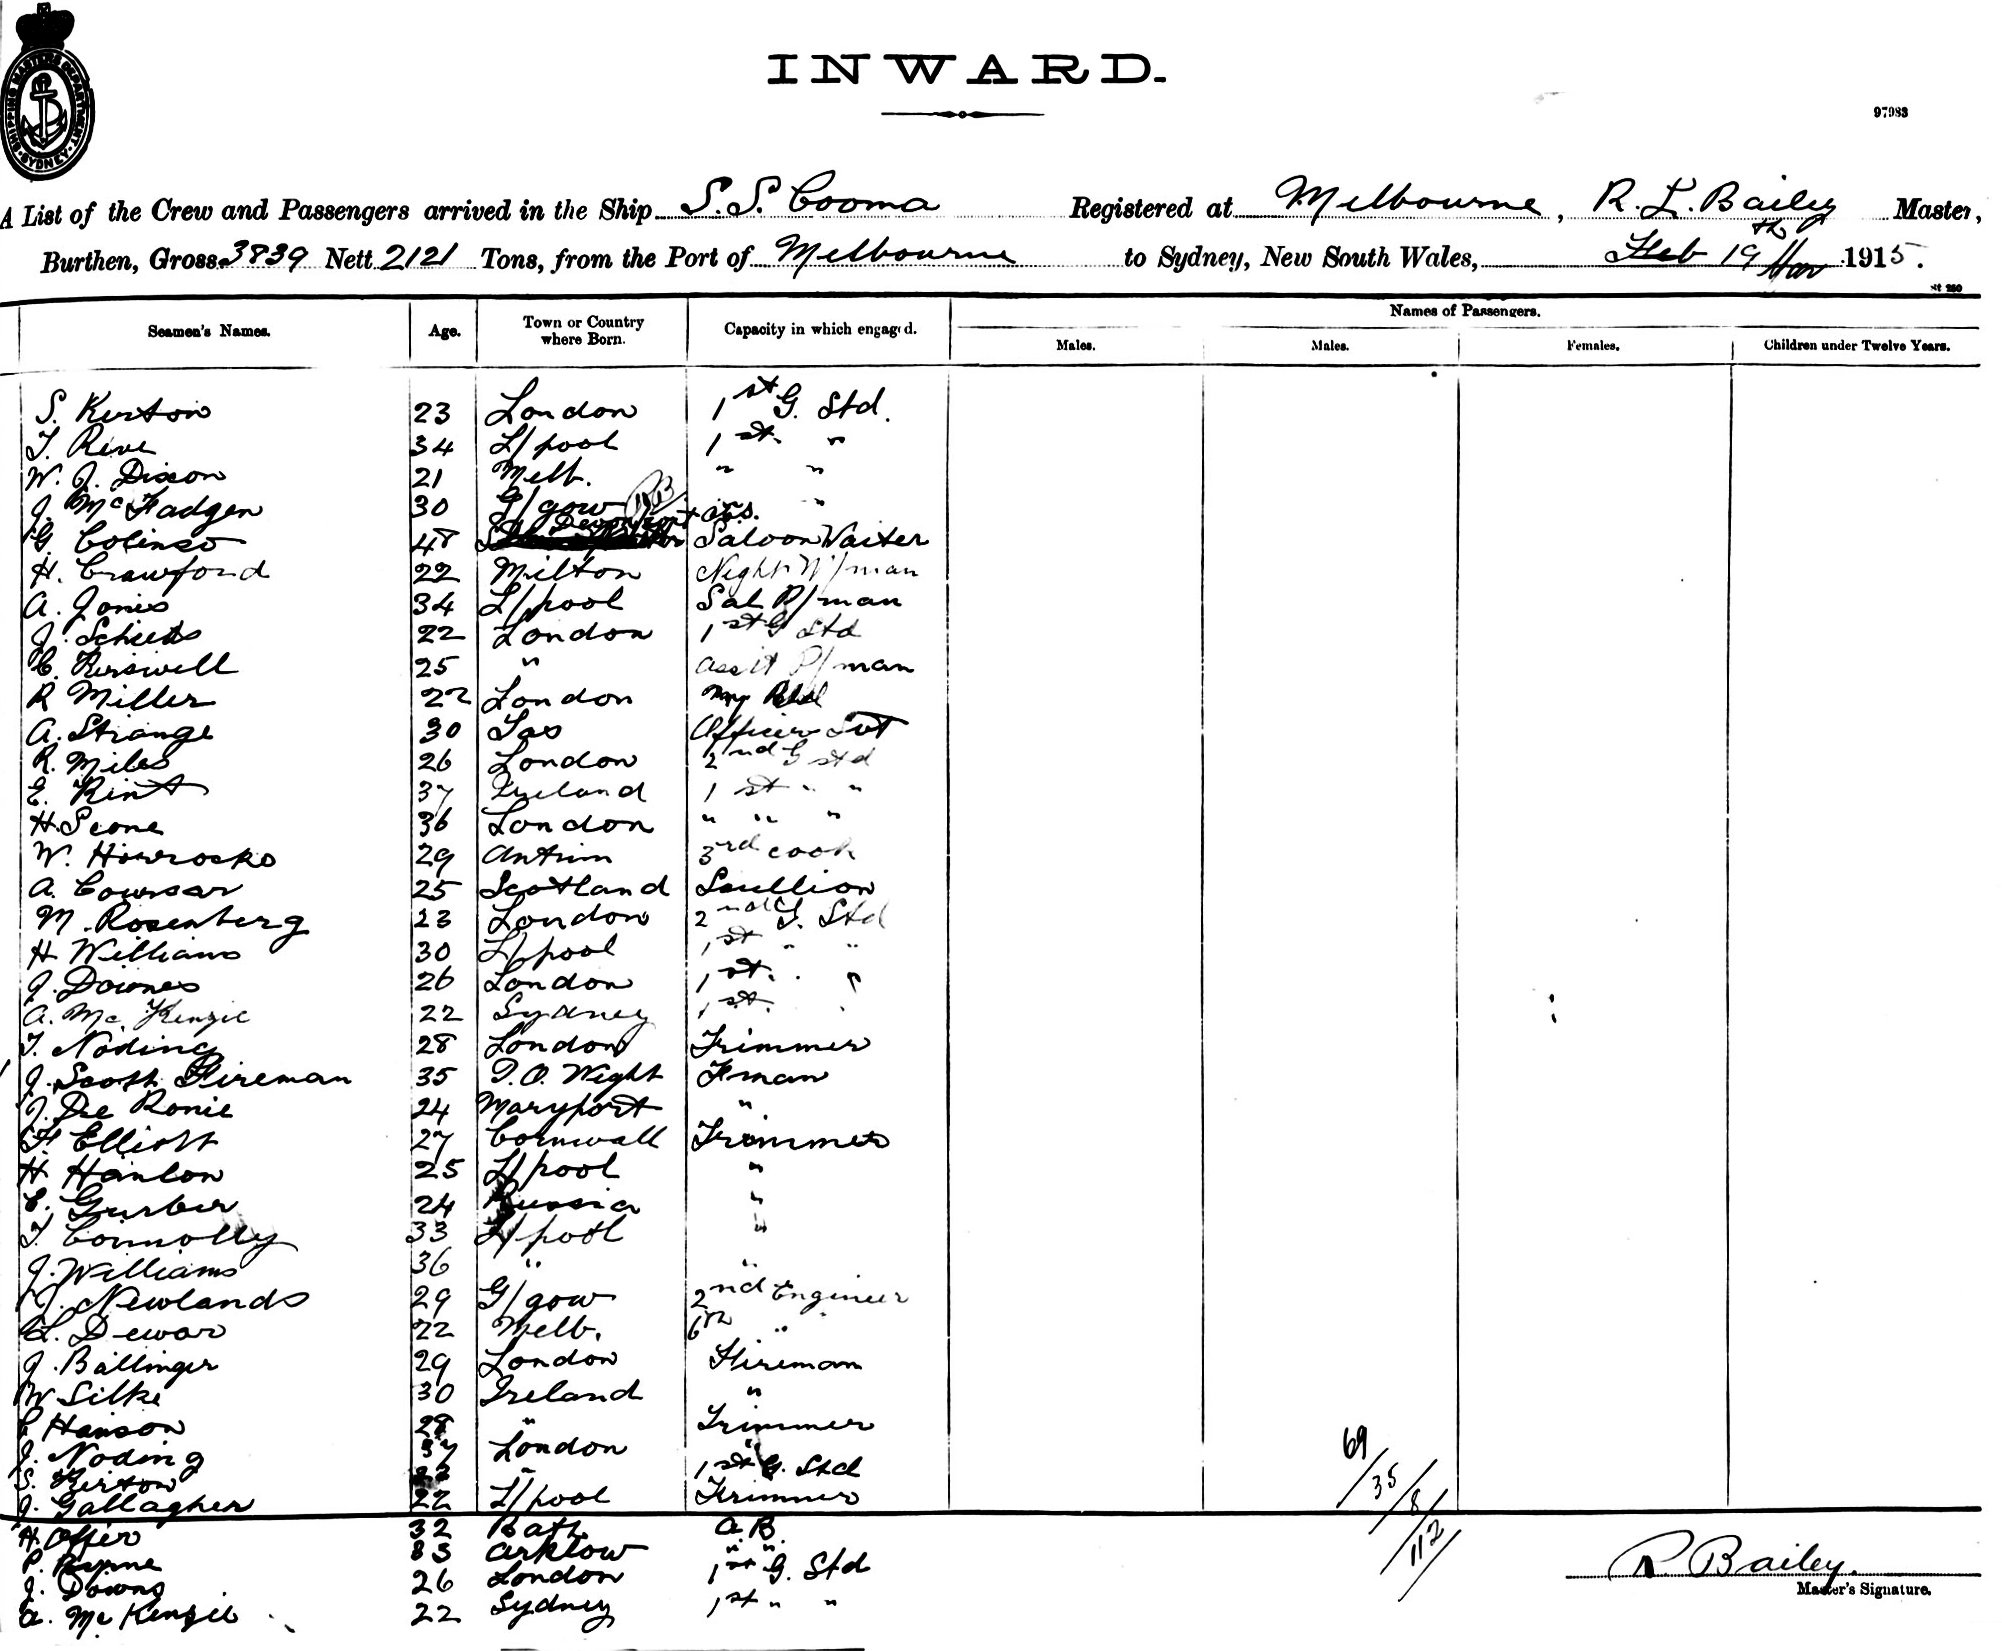 SHIPPING MASTERS DEPARTMENT SYDNEY
INWARD.
97983
A List of the Crew and Passengers arrived in the Ship S.S. Cooma Registered at Melbourne, R. L. Bailey Master,
Burthen, Gross 3839 Nett 2121 Tons, from the Port of Melbourne to Sydney, New South Wales, Feb 19th Mar 1915.
St 280
Seamen's Names. Age. Town or Country where Born. Capacity in which engaged. Names of Passengers.
Males. Males. Females. Children under Twelve Years.
S. Kerton 23 London 1st G. Std.
T. Reve 34 L/pool 1st "
W. J. Dixon 21 Melb. " "
J. McFadgen 30 G/gow "
G Colenso 48 Devonport Saloon Waiter
H. Crawford 22 Milton Night W/man
A. Jones 34 L/pool Sal P/man
J. 22 London 1st G Std
C. Kerswell 25 " Asst P/man
R Miller 22 London
A. Strange 30 Tas Officers Svt
R. Miles 26 London 2nd G Std
E. Kent 37 Ireland 1st " "
H. Seone 36 London " " "
W. 29 Antrim 3rd cook
A. Cowsar 25 Scotland Scullion
M. Rosenberg 23 London 2nd G. Std
H Williams 30 L/pool 1st " "
J. Downes 26 London 1st " "
A. McKenzie 22 Sydney 1st "
T. Noding 28 London Trimmer
J. Scott Fireman 35 I.O. Wight Fman
J. De Ronie 24 Maryport "
F. Elliott 27 Cornwall Trimmer
H Hanlon 25 L/pool "
C. Gurber 24 Russia "
T. Connolly 33 L/pool "
J. Williams 36 " "
J. Newlands 29 G/gow 2nd Engineer
L. Dewar 22 Melb. 6th "
J. Ballinger 29 London Fireman
W Silke 30 Ireland "
C Hanson 28 " Trimmer
J. Noding 37 London "
S. Kerton " 1st G. Std
J. Gallagher 22 L/pool Trimmer
69/35/8/112
H. Offer 32 Bath A.B.
P. Byrne 33 Arklow " "
J. Downs 26 London 1st G. Std
A. McKenzie 22 Sydney 1st " "
R Bailey.
Master's Signature.